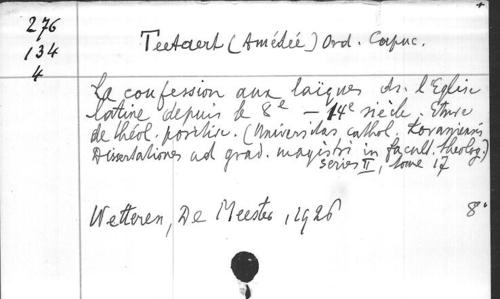 276
134
4
Teetaert (Amédée) Ord. Capuc.
La confession aux laïques ds. l'Eglise
latine depuis le 8e – 14e siècle. Etude
de théol. positive. (Universitas cathol. Lovaniensis
Dissertationes ad grad. magistri in facult. theolog.)
series II, tome 17
Wetteren, De Meester, 1926 8°